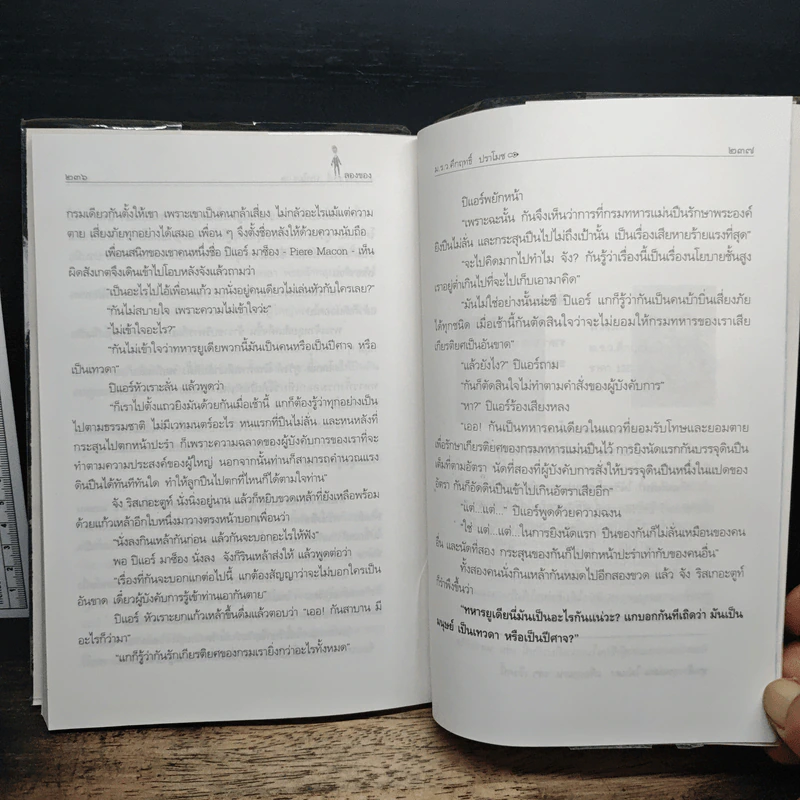 ๒๓๖
สองของ
กรมเดียวกันตั้งให้เขา เพราะเขาเป็นคนกล้าเสี่ยง ไม่กลัวอะไรแม้แต่ความ
ตาย เสี่ยงภัยทุกอย่างได้เสมอ เพื่อน ๆ จึงตั้งชื่อหลังให้ด้วยความนับถือ
เพื่อนสนิทของเขาคนหนึ่งชื่อ ปิแอร์ มาซ็อง - Piere Macon - เห็น
ผิดสังเกตจึงเดินเข้าไปโอบหลังจังแล้วถามว่า
“เป็นอะไรไปไอ้เพื่อนแก้ว มานั่งอยู่คนเดียวไม่เล่นหัวกับใครเลย?”
“กันไม่สบายใจ เพราะความไม่เข้าใจว่ะ”
“ไม่เข้าใจอะไร?”
“กันไม่เข้าใจว่าทหารยูเดียพวกนี้มันเป็นคนหรือเป็นปีศาจ หรือ
เป็นเทวดา”
ปิแอร์หัวเราะลั่น แล้วพูดว่า
“ก็เราไปตั้งแถวยิงมันด้วยกันเมื่อเช้านี้ แกก็ต้องรู้ว่าทุกอย่างเป็น
ไปตามธรรมชาติ ไม่มีเวทมนตร์อะไร หนแรกที่ปืนไม่ลั่น และหนหลังที่
กระสุนไปตกหน้าปะรำ ก็เพราะความฉลาดของผู้บังคับการของเราที่จะ
ทำตามความประสงค์ของผู้ใหญ่ นอกจากนั้นท่านก็สามารถคำนวณแรง
ดินปืนได้ทันทีทันใด ทำให้ลูกปืนไปตกที่ไหนก็ได้ตามใจท่าน”
จัง ริสเกอะตูท์ นั่งนิ่งอยู่นาน แล้วก็หยิบขวดเหล้าที่ยังเหลือพร้อม
ด้วยแก้วเหล้าอีกใบหนึ่งมาวางตรงหน้าบอกเพื่อนว่า
“นั่งลงกินเหล้ากันก่อน แล้วกันจะบอกอะไรให้ฟัง”
พอ ปิแอร์ มาซ็อง นั่งลง จังก็รินเหล้าส่งให้ แล้วพูดต่อว่า
“เรื่องที่กันจะบอกแกต่อไปนี้ แกต้องสัญญาว่าจะไม่บอกใครเป็น
อันขาด เดี๋ยวผู้บังคับการรู้เข้าท่านเอากันตาย”
ปิแอร์ หัวเราะยกแก้วเหล้าขึ้นดื่มแล้วตอบว่า “เออ! กันสาบาน มี
อะไรก็ว่ามา”
“แกก็รู้ว่ากันรักเกียรติยศของกรมเรายิ่งกว่าอะไรทั้งหมด”
ม.ร.ว คึกฤทธิ์ ปราโมช
๒๓๗
ปิแอร์พยักหน้า
“เพราะฉะนั้น กันจึงเห็นว่าการที่กรมทหารแม่นปืนรักษาพระองค์
ยิงปืนไม่ลั่น และกระสุนปืนไปไม่ถึงเป้านั้น เป็นเรื่องเสียหายร้ายแรงที่สุด”
“จะไปคิดมากไปทำไม จัง? กันรู้ว่าเรื่องนี้เป็นเรื่องนโยบายชั้นสูง
เราอยู่ต่ำเกินไปที่จะไปเก็บเอามาคิด”
“มันไม่ใช่อย่างนั้นน่ะซี ปิแอร์ แกก็รู้ว่ากันเป็นคนบ้าบิ่นเสี่ยงภัย
ได้ทุกชนิด เมื่อเช้านี้กันตัดสินใจว่าจะไม่ยอมให้กรมทหารของเราเสีย
เกียรติยศเป็นอันขาด”
“แล้วยังไง?” ปิแอร์ถาม
“กันก็ตัดสินใจไม่ทำตามคำสั่งของผู้บังคับการ”
“หา?” ปิแอร์ร้องเสียงหลง
“เออ! กันเป็นทหารคนเดียวในแถวที่ยอมรับโทษและยอมตาย
เพื่อรักษาเกียรติยศของกรมทหารแม่นปืนไว้ การยิงนัดแรกกันบรรจุดินปืน
เต็มที่ตามอัตรา นัดที่สองที่ผู้บังคับการสั่งให้บรรจุดินปืนหนึ่งในแปดของ
อัตรา กันก็อัดดินปืนเข้าไปเกินอัตราเสียอีก”
“แต่...แต่...” ปิแอร์พูดด้วยความฉงน
“ใช่ แต่...แต่...ในการยิงนัดแรก ปืนของกันก็ไม่ลั่นเหมือนของคน
อื่น และนัดที่สอง กระสุนของกันก็ไปตกหน้าปะรำเท่ากับของคนอื่น”
ทั้งสองคนนั่งกินเหล้ากันหมดไปอีกสองขวด แล้ว จัง ริสเกอะตูท์
ก็รำพึงขึ้นว่า
“ทหารยูเดียนี่มันเป็นอะไรกันแน่วะ? แกบอกกันทีเถิดว่า มันเป็น
มนุษย์ เป็นเทวดา หรือเป็นปีศาจ?”